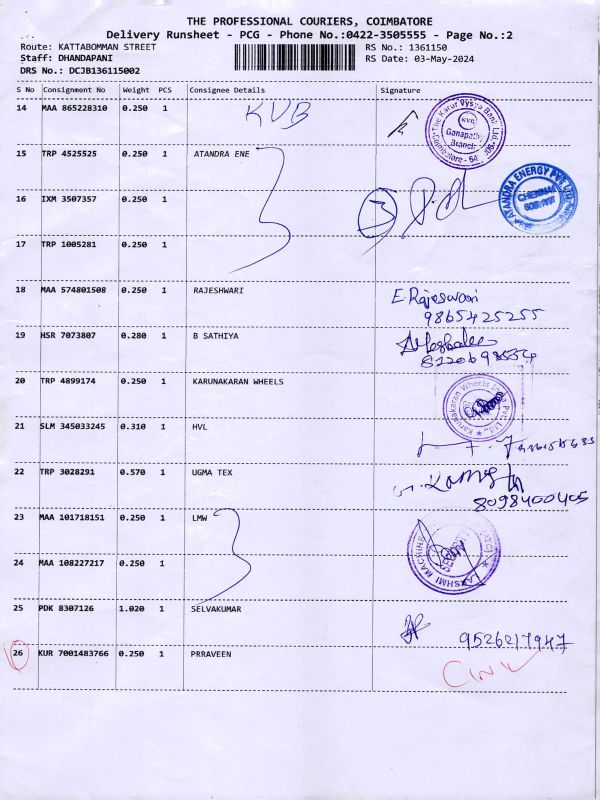 THE PROFESSIONAL COURIERS, COIMBATORE
Delivery Runsheet - PCG - Phone No.:0422-3505555 - Page No.:2
Route: KATTABOMMAN STREET RS No.: 1361150
Staff: DHANDAPANI RS Date: 03-May-2024
DRS No.: DCJB136115002
S No Consignment No Weight PCS Consignee Details Signature
14 MAA 865228310 0.250 1 KVB
The Karur Vysya Bank Ltd
KVB
Ganapathy
Branch
Coimbatore
15 TRP 4525525 0.250 1 ATANDRA ENE
16 IXM 3507357 0.250 1 3
CHENNAI
17 TRP 1005281 0.250 1
18 MAA 574801508 0.250 1 RAJESHWARI E. Rajeswari
9865425255
19 HSR 7073807 0.280 1 B SATHIYA
20 TRP 4899174 0.250 1 KARUNAKARAN WHEELS
Karunakaran Wheels India Pvt. Ltd.,
21 SLM 345033245 0.310 1 HVL
22 TRP 3028291 0.570 1 UGMA TEX
8098400405
23 MAA 101718151 0.250 1 LMW
24 MAA 108227217 0.250 1
LAKSHMI MACHINE
25 PDK 8307126 1.020 1 SELVAKUMAR
9526217947
26 KUR 7001483766 0.250 1 PRRAVEEN